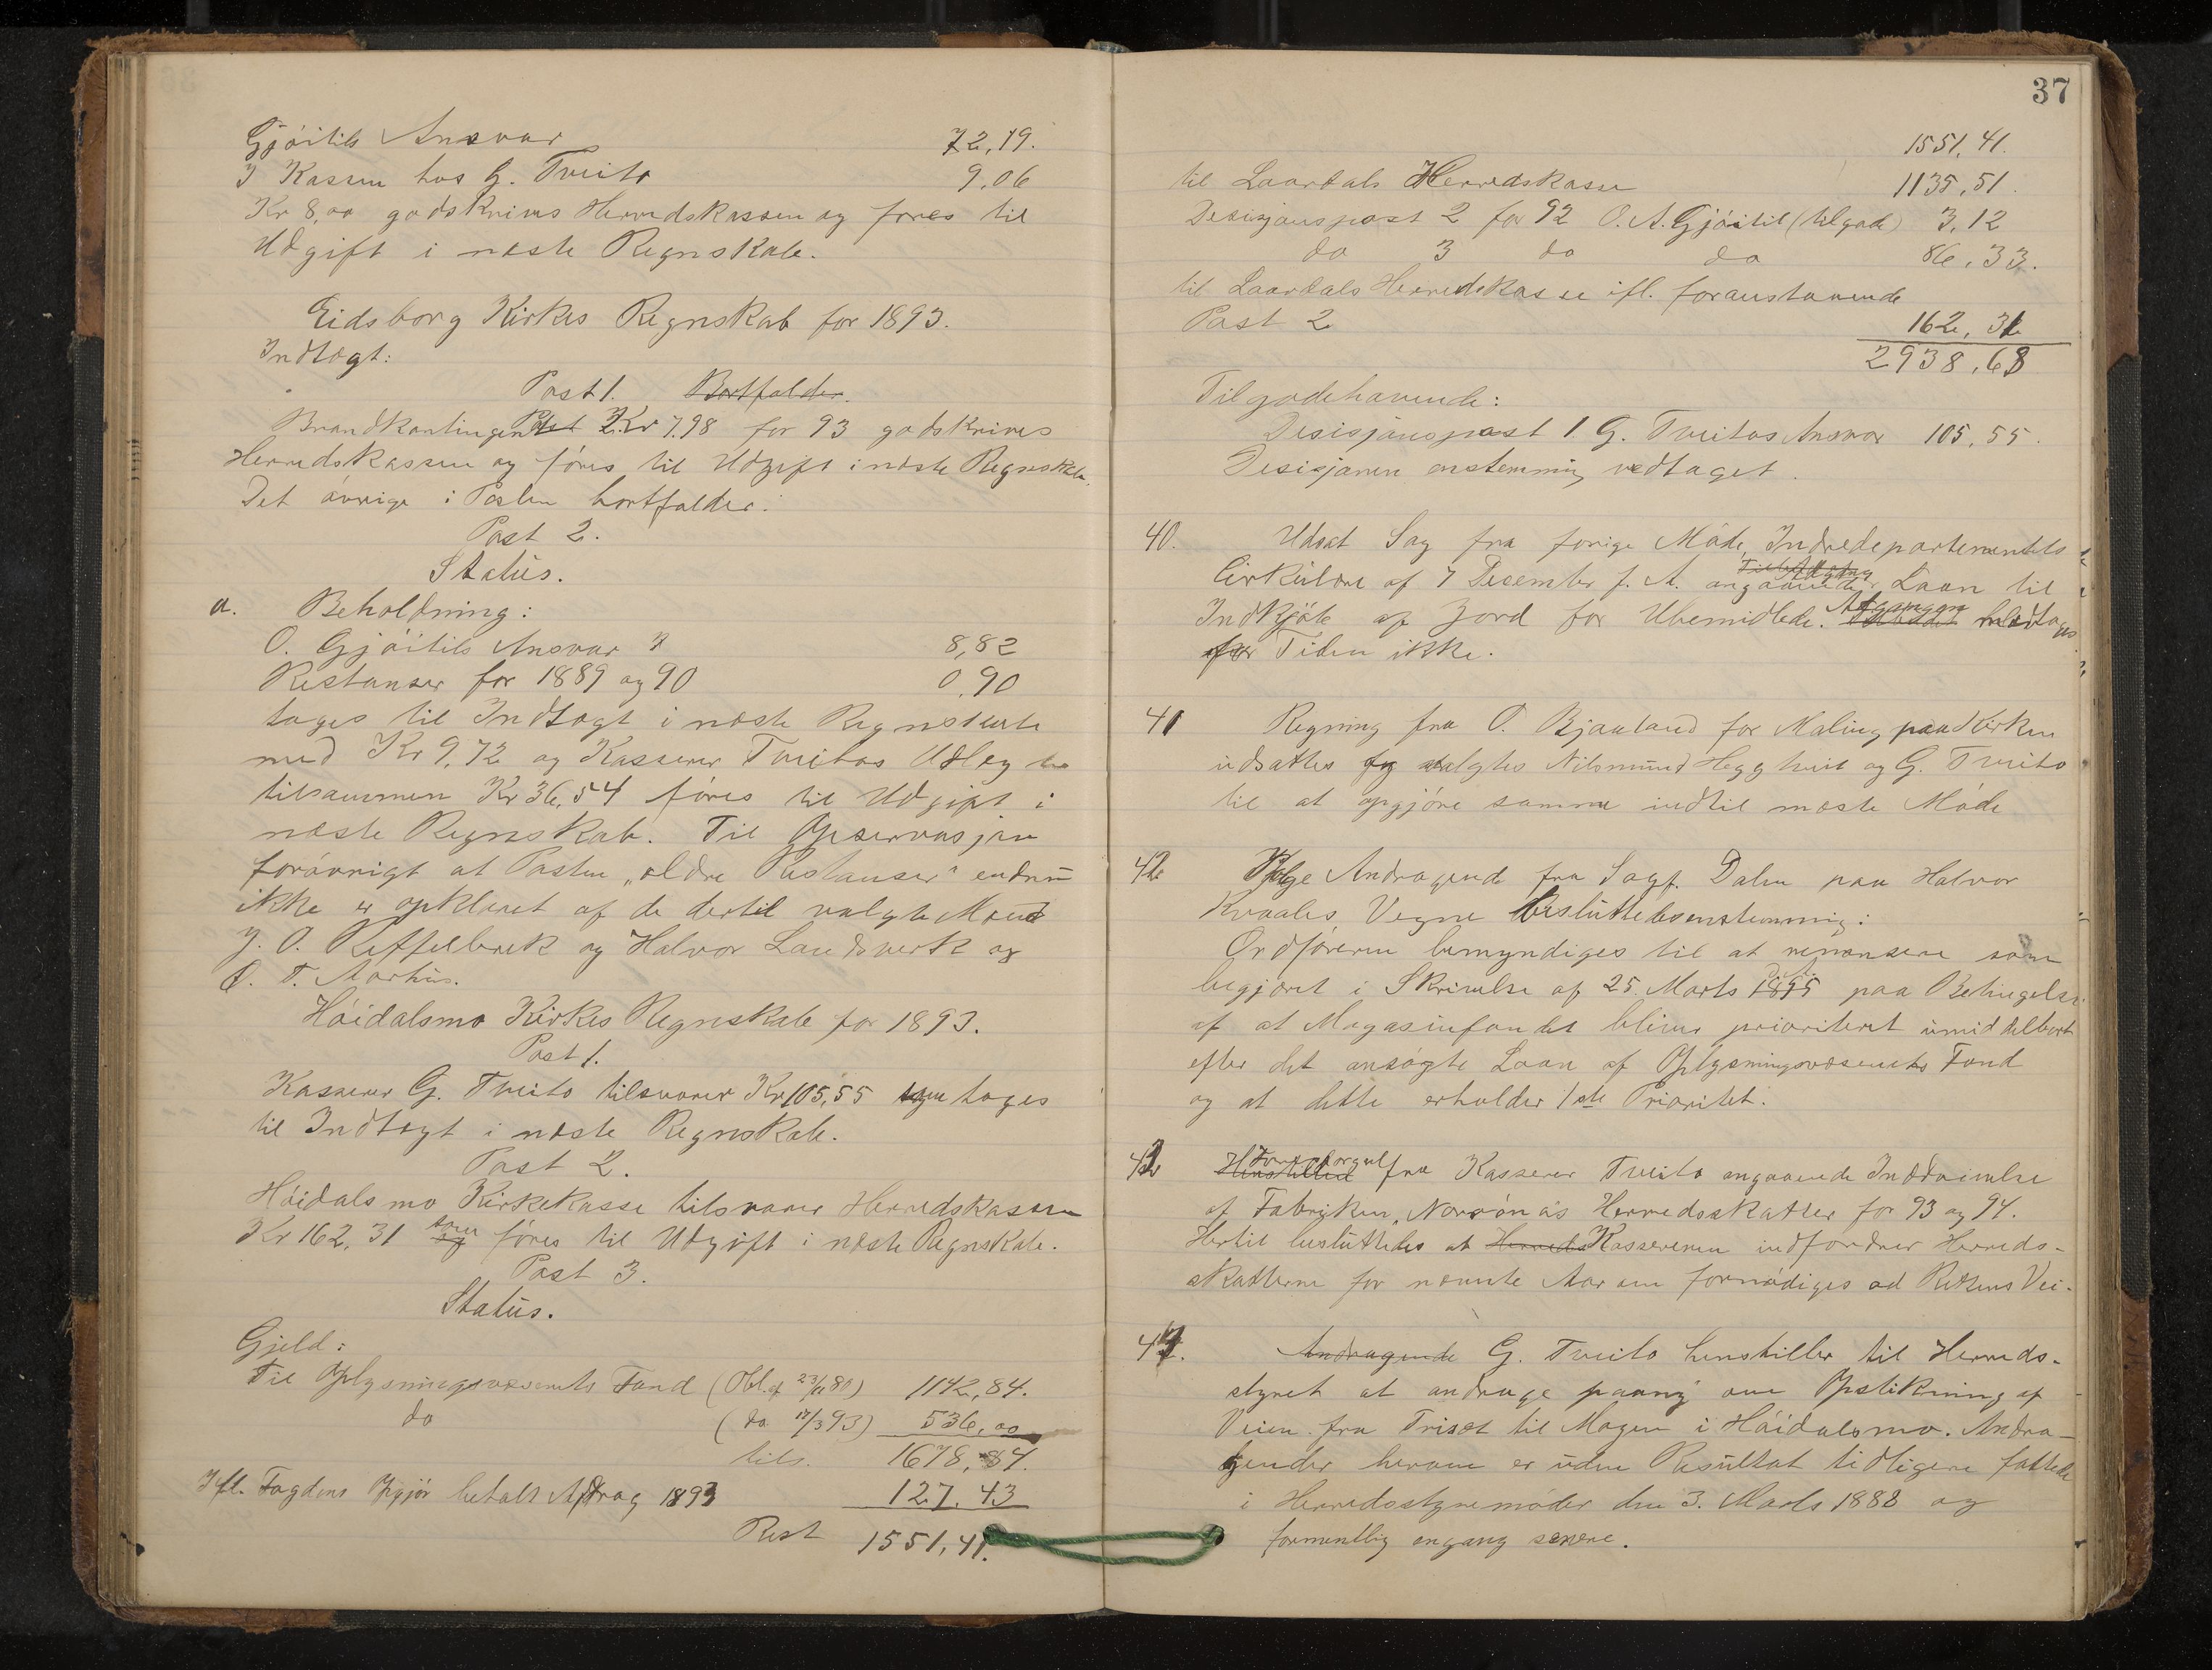 Gjöitils Ansvar 72,19.
I Kassen hos G. Tveito 9,06
Kr 8,00 godskrives Herredskassen og föres til
Udgift i næste Regnskab.
Eidsborg Kirkes Regnskab for 1893.
Indtægt:
Post 1. Bortfalder.
Brandkontingent Kr 7.98 for 93 godskrives
Herredskassen og föres til Udgift i næste Regnskab.
Det övrige i Posten bortfalder.
Post 2.
Status.
a. Beholdning:
O. Gjöitils Ansvar 8,82
Restanser for 1889 og 90 0,90
tages til Indtægt i næste Regnskab
med Kr 9,72 og Kasserer Tveitos Udlæg
tilsammen Kr 36,54 föres til Udgift i
næste Regnskab. Til Observasjon
forövrigt at Posten „ældre Restanser" endnu
ikke er opklaret af de dertil valgte Mænd
J. O. Kiffelbrek og Halvor Landsverk og
O. T. Aarhus.
Höidalsmo Kirkes Regnskab for 1893.
Post 1.
Kasserer G. Tveito tilsvarer Kr 105,55 som tages
til Indtægt i næste Regnskab.
Post 2.
Höidalsmo Kirkekasse tilsvarer Herredskassen
Kr 162,31 som föres til Udgift i næste Regnskab.
Post 3.
Status.
Gjeld:
Til Oplysningsvæsenets Fond (Obl. af 23/11 80) 1142,84.
do (do 17/3 93) 536,00
tils. 1678,84.
Ifl. Fogdens Opgjör betalt Afdrag 1893 127.43
Rest 1551,41.
37
1551,41.
til Laardals Herredskasse 1135,51.
Desisjonspost 2 for 92 O. A. Gjöitil (tilgode) 3,12
do 3 do do 86,33.
til Laardals Herredskasse ifl. foranstaaende
Post 2 162,31
2938,68
Tilgodehavende:
Desisjonspost 1. G. Tveitos Ansvar 105,55.
Desisjonen enstemmig vedtaget.
40. Udsat Sag fra forige Möde, Indredepartementets
Cirkulære af 7 Desember f. A. angaaende Laan til
Indkjöb af Jord for Ubemidlede. Adgangen vedtages
for Tiden ikke.
41 Regning fra O. Bjaaland for Maling paa Kirken
udsattes og valgtes Nilsmund Hegghveit og G. Tveito
til at opgjöre samme indtil næste Möde
42 Ifölge Andragende fra Sagf. Dalen paa Halvor
Kvaales Vegne besluttedes enstemmig:
Ordföreren bemyndiges til at renonsere som
begjæret i Skrivelse af 25. Marts 1895 paa Betingelse
af at Magasinfondet blive prioriteret umiddelbart
efter det ansögte Laan af Oplysningsvæsenets Fond
og at dette erholder 1ste Prioritet.
43 Henstilled Forespörgsel fra Kasserer Tveito angaaende Inddrivelse
af Fabriken „Norrönas Herredsskatter for 93 og 94.
Hertil besluttedes at Herreds Kassereren indfordrer Herreds-
skatterne for nævnte Aar om fornödiges ad Rettens Vei.
44. Andragende G. Tveito henstiller til Herreds-
styret at andrage paany om Opstikning af
Veien fra Triset til Mogen i Höidalsmo. Andra-
gender herom er uden Resultat tidligere fattede
i Herredsstyremöder den 3. Marts 1888 og
formentlig engang senere.